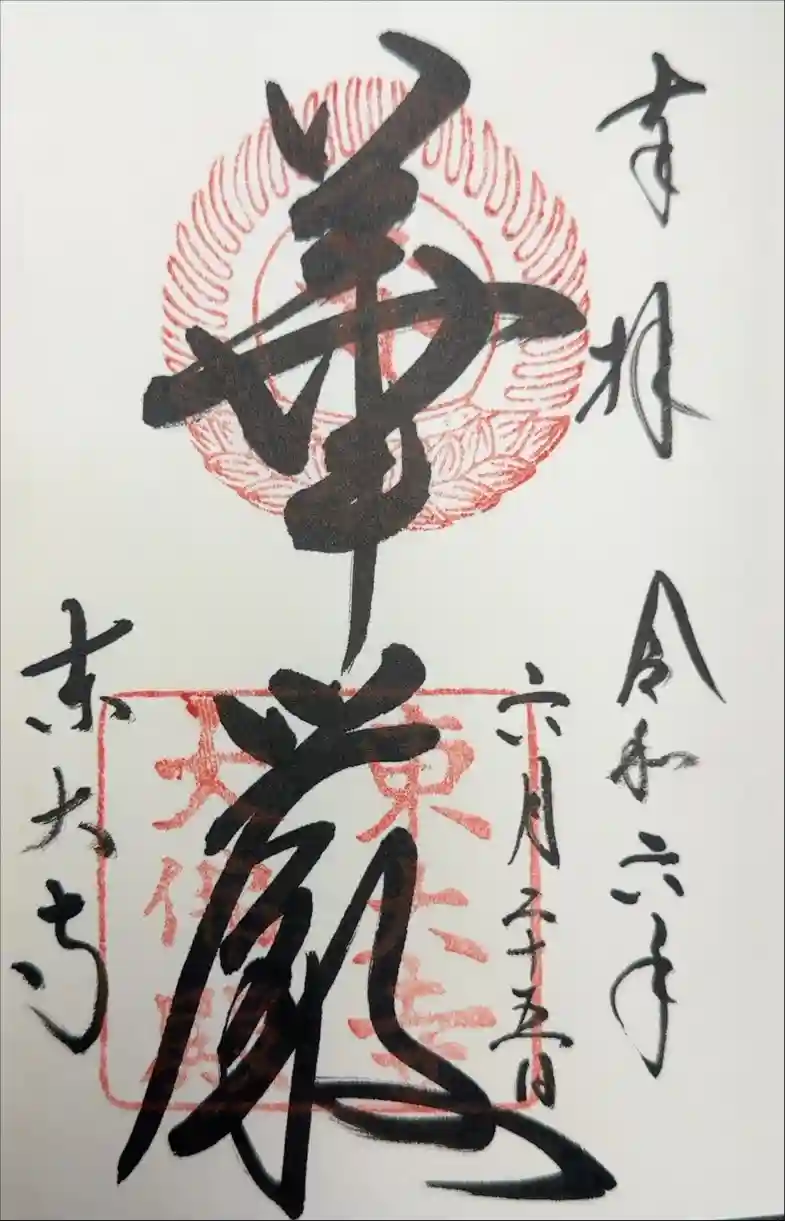 奉拝 令和六年
六月二十五日
華厳
東大寺
東大寺
大佛殿